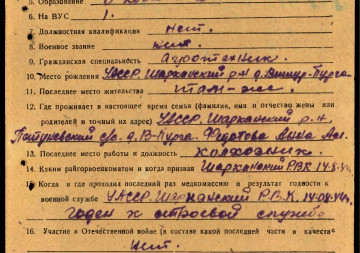 5. Образование
6. На ВУС 1.
7. Должностная квалификация нет.
8. Военное звание нет.
9. Гражданская специальность агротехник
10. Место рождения УАССР. Шарканский р-н д. Пурга.
11. Последнее место жительства там-же
12. Где проживает в настоящее время семья (фамилия, имя и отчество жены или
родителей и точный их адрес) УАССР. Шарканский р. н.
с/с. д. В-Пурга. Федотова Анна
13. Последнее место работы и должность колхозник.
14. Каким райгорвоенкоматом и когда призван Шарканский РВК 14-8-44г.
15. Когда и где проходил последний раз медкомиссию и результат годности к
военной службе УАССР. Шарканский Р.В.К. 14-08-44г.
годен к строевой службе
16. Участие в Отечественной войне (в составе какой последней части и качеств
Нет.